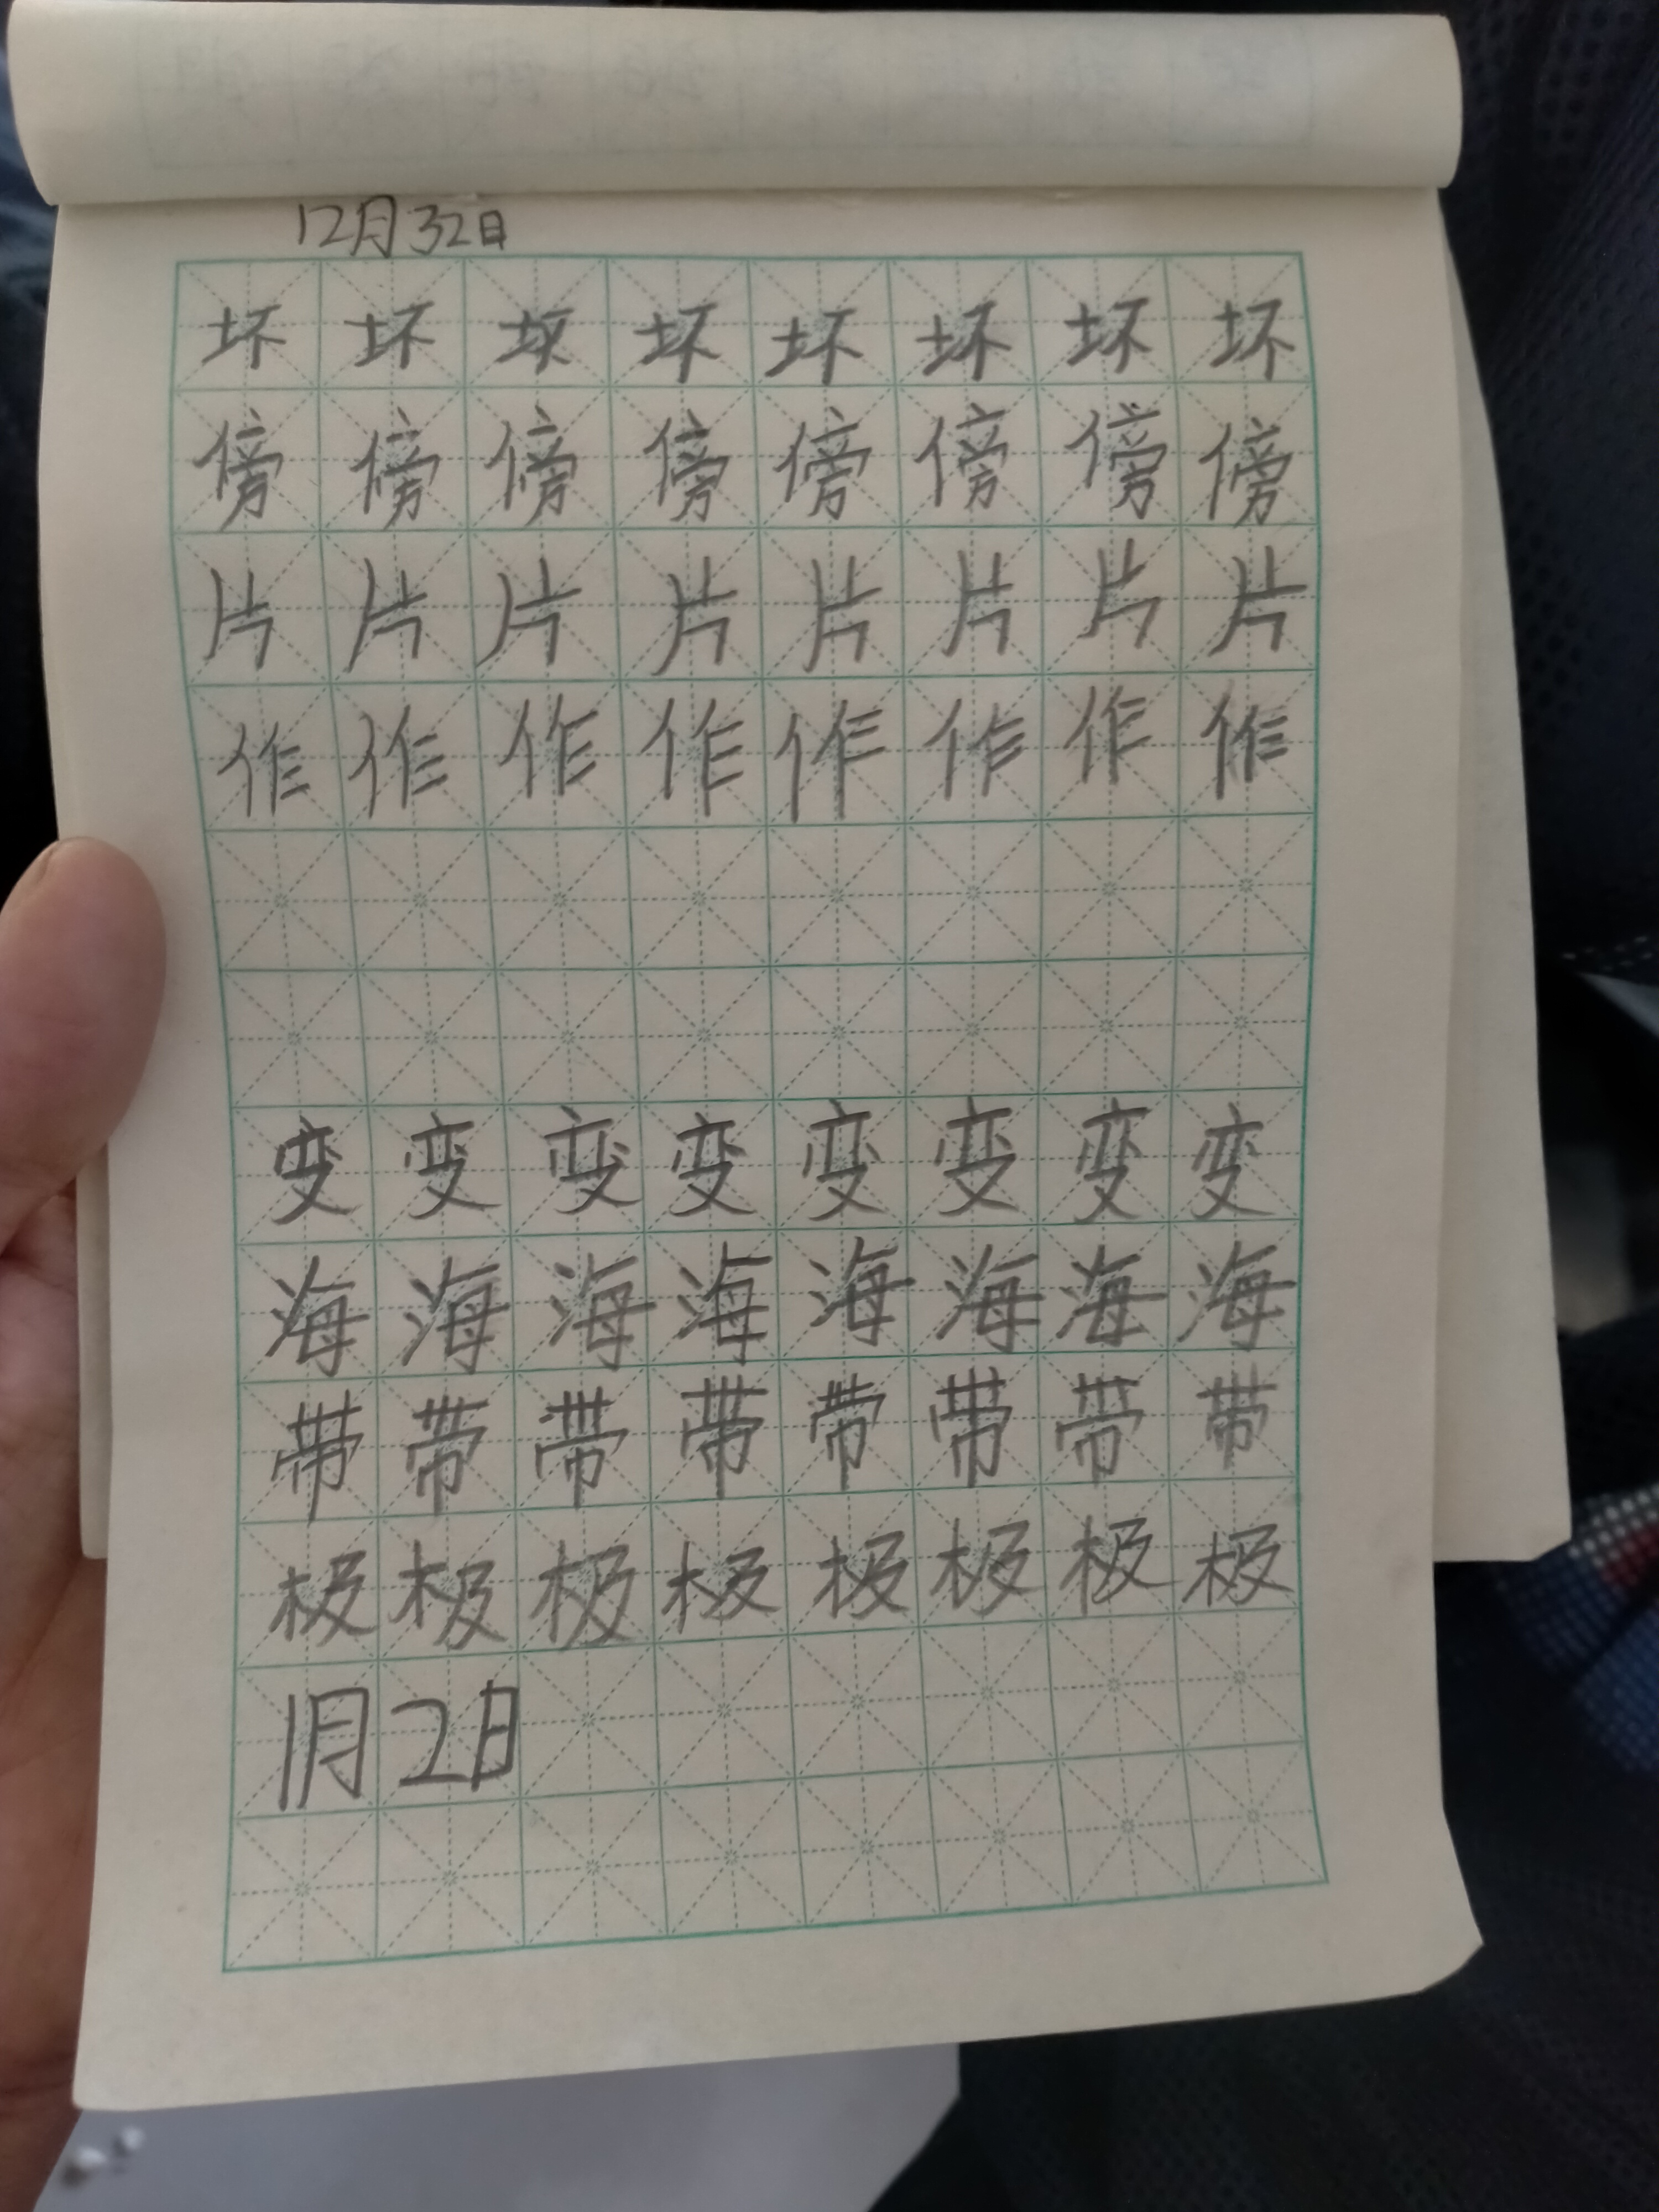 12月32日
坏坏坏坏坏坏坏坏
傍傍傍傍傍傍傍傍
片片片片片片片片
作作作作作作作作
变变变变变变变变
海海海海海海海海
带带带带带带带带
极极极极极极极极
1月2日